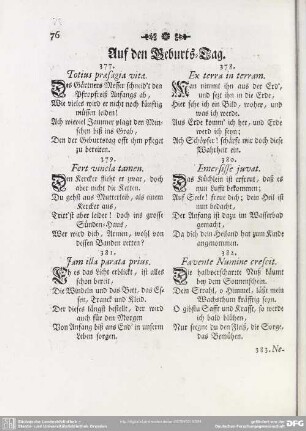 76
Auf den Geburts-Tag.
377.
Totus præsagia vitæ.
Des Gärtners Messer schneid't den
Pfropfreiß Anfangs ab,
Wie vieles wird er nicht noch künftig
müssen leiden!
Ach wieviel Jammer plagt den Men-
schen biß ins Grab,
Den der Geburtstag offt ihm pfleget
zu bereiten.
379.
Fert vincla tamen.
Den Kercker flieht er zwar, doch
aber nicht die Ketten.
Du gehst aus Mutterleib, als einem
Kercker aus,
Trittst aber leider! doch ins grosse
Sünden-Haus,
Wer wird dich, Armen, wohl von
dessen Banden retten?
381.
Jam illa parata prius.
Eh es das Licht erblickt, ist alles
schon bereit,
Die Windeln und das Bett, das Es-
sen, Tranck und Kleid.
Der dieses längst bestellt, der wird
auch für den Morgen
Von Anfang biß ans End' in unserm
Leben sorgen.
378.
Ex terra in terram.
Man nimmt ihn aus der Erd', und
setzt ihn in die Erde,
Hier sehe ich ein Bild, woher, und
was ich werde.
Aus Erde komm' ich her, und Erde
werd ich seyn;
Ach Schöpfer! schärfe mir doch diese
Wahrheit ein.
380.
Emersisse juvat.
Das Küchlein ist erfreut, daß es
nun Lufft bekommen;
Auf Seele! freue dich; dein Heil ist
nun bedacht.
Der Anfang ist dazu im Wasserbad
gemacht,
Da dich dein Heiland hat zum Kinde
angenommen.
382.
Favente Numine crescit.
Die halbverscharrte Nuß käumt
bey dem Sonnenschein.
Dein Strahl, o Himmel, läßt mein
Wachsthum kräfftig seyn.
O gibstu Safft und Krafft, so werde
ich bald blühen,
Nur segne du den Fleiß, die Sorge,
das Bemühen.
383. Ne-